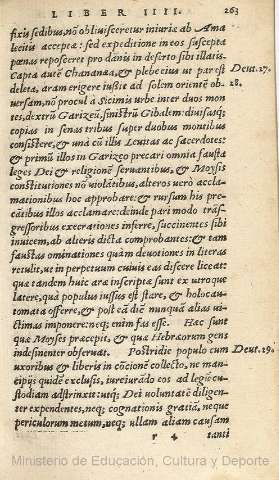 LIBER IIII. 263
fixis sedibus, nō obliuisceretur iniuriæ ab Ama
lecitis acceptæ: sed expeditione in eos suscepta
pœnas reposceret pro dānis in deserto sibi illatis.
Capta autē Chananæa, & plebecius ut par est Deut. 27.
deleta, aram erigere iussit ad solem orientē ob- 28.
uersam, nō procul a Sicimis urbe inter duos mon
tes, dextrū Garizeū, sinistrū Gibalem: diuisasq;
copias in senas tribus super duobus montibus
consistere, & unà cū illis Leuitas ac sacerdotes:
& primū illos in Garizeo precari omnia fausta
leges Dei & religionē seruantibus, & Moysis
constitutiones nō violātibus, alteros verò accla-
mationibus hoc approbare: & rursum his pre-
cātibus illos acclamare: deinde pari modo trās-
gressoribus execrationes inferre, succinentes sibi
inuicem, ab alteris dicta comprobantes: & tam
faustas ominationes quàm deuotiones in literas
retulit, ut in perpetuum cuiuis eas discere liceat:
quas tandem huic aræ inscriptæ sunt ex utroque
latere, quà populus iussus est stare, & holocau
tomata offerre, & post eā diē nunquā alias ui-
ctimas imponere: neq; enim fas esse. Hæc sunt
quæ Moyses præcepit, & quæ Hebræorum gens
indesinenter obseruat. Postridie populo cum Deut. 29.
uxoribus & liberis in cōcionē collecto, ne man-
cipijs quidē exclusis, iureiurādo eos ad legiū cu-
stodiam adstrinxit: utq; Dei voluntatē diligen-
ter expendentes, neq; cognationis gratiā, neque
periculorum metum, neq; ullam aliam causam
r 4 tanti
Ministerio de Educación, Cultura y Deporte